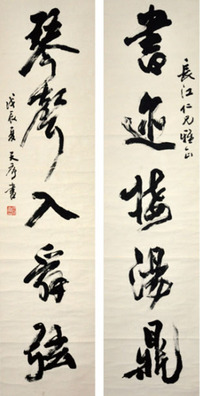 長江仁兄雅正
書迹接湯鼎
琴聲入舜弦
戊辰夏天書